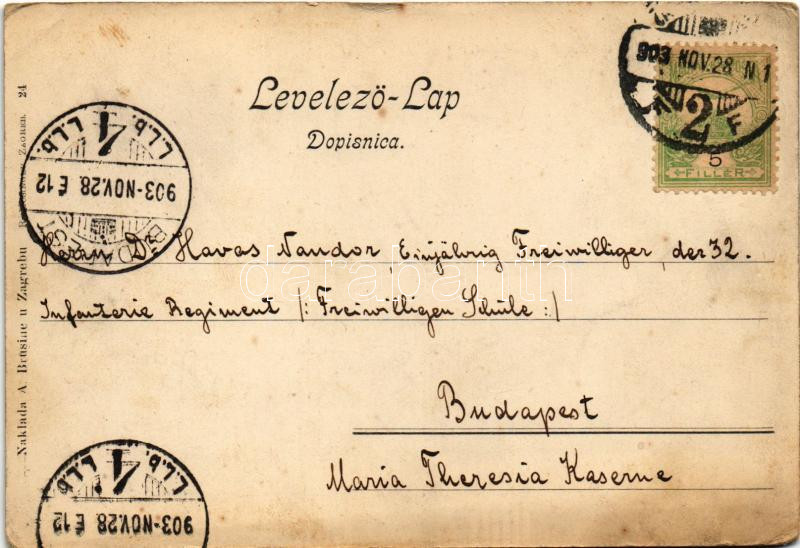 Levelező-Lap
Dopisnica.
903 NOV. 28. N 1
2 F
5
FILLÉR
1 L.L.b. L.L.b.
903-NOV.28. É 12
BUDAPEST
Herrn Dr. Havas Nandor, Einjährig Freiwilliger, der 32.
Infanterie Regiment /: Freiwilligen Schule :/
Budapest
Maria Theresia Kaserne
L.L.b. L.L.b.
903-NOV.28. É 12
Naklada A. Brusine u Zagrebu
Zagreb. 24
darabanth